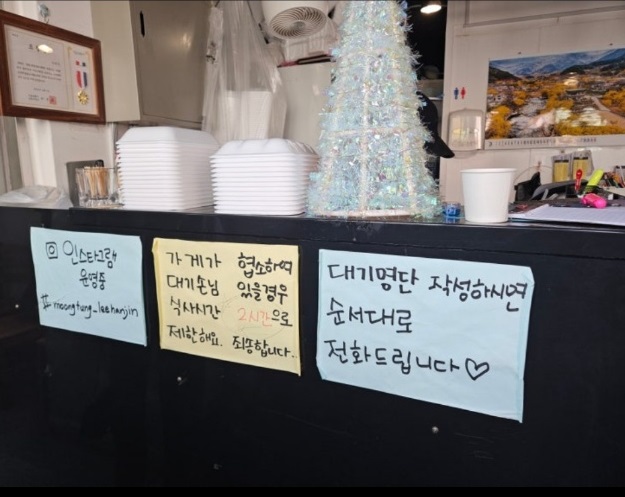 인스타그램
운영중
#moongtung_leehanjin
가게가 협소하여
대기손님 있을경우
식사시간 2시간으로
제한해요. 죄송합니다..
대기명단 작성하시면
순서대로
전화드립니다♡